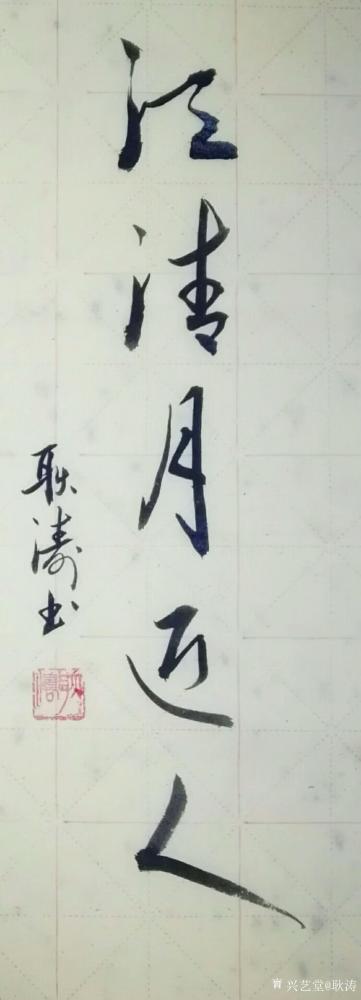 江清月近人
耿涛书
兴艺堂@耿涛